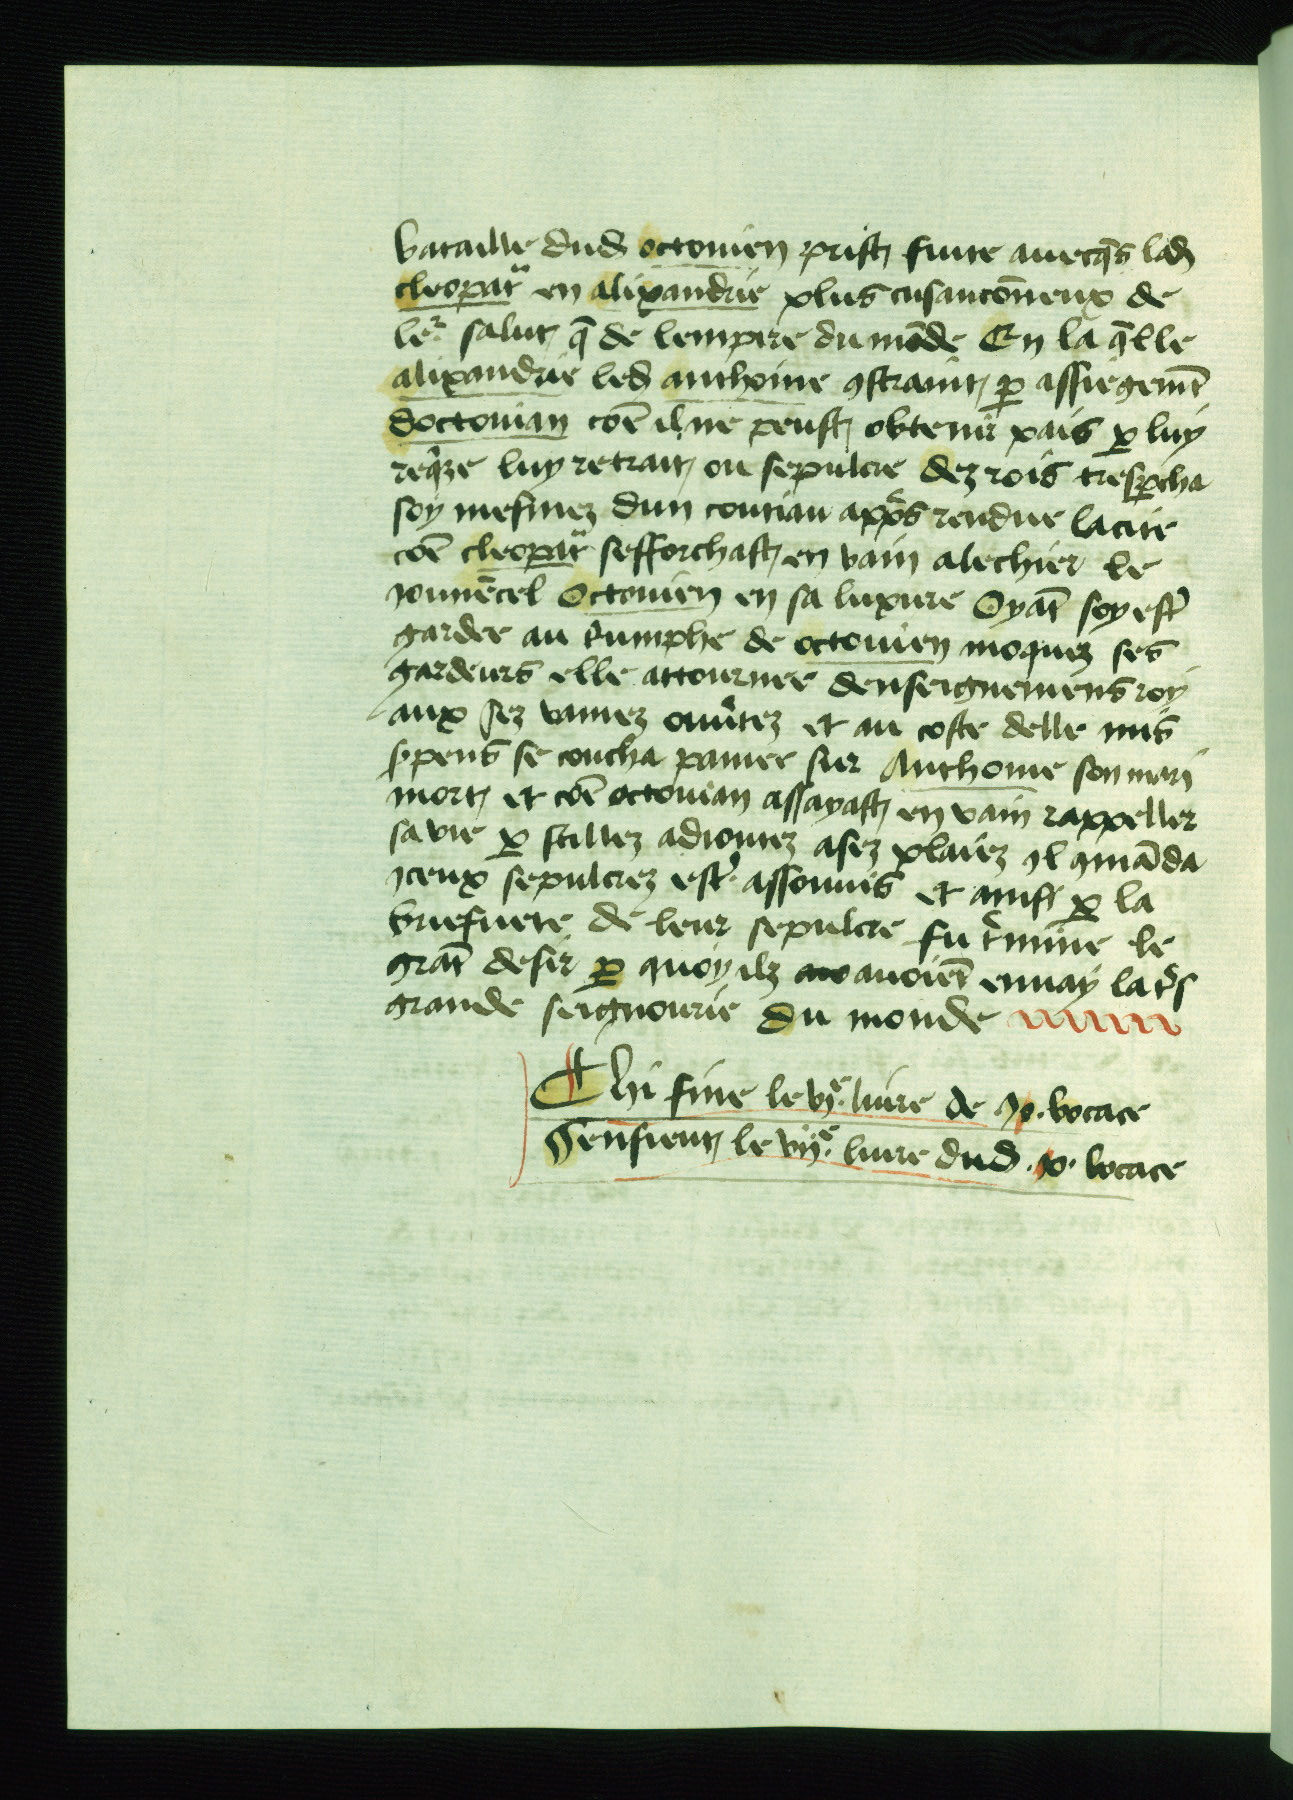 bataille dud octouien prist fuite auecq̄s lad
cleopat en alixandrie plus cusancōneux de
ler salut q̄ de lempire du mōde En la q̄lle
alixandrie led anthoine ꝯstraint ꝑ assiegemt̄
doctouian cōe il ne peust obtenir pais ꝑ luy
reqize luy retrait ou sepulcre dez rois tresꝑcha
soy mesmez dun coutiau apps rendue la cite
cōe cleopat sefforchast en vain alechier le
jouuēcel Octouien en sa luxure Oyāt soy estr
gardee au triumphe de octouien moquez ses
gardeurs elle attournee denseignemens roy
aux sez vainez ouutez et au coste delle mis
spens se coucha pamee sur Anthoine son mari
mort et cōe octouian assayast en vain rappeller
sa vie ꝑ stillez adioutez asez plaiez il ꝯmāda
iceux sepulcrez estr assouuis et ainsi ꝑ la
briefuete de leur sepulcre fu tminee le
grāt desir ꝑ quoy ilz auoiēt enuay la ts
grande seignourie du monde
Chi fine le vjͤ. liure de Jo. bocace
Sensieut le vijͤ. liure dud. Jo. bocace